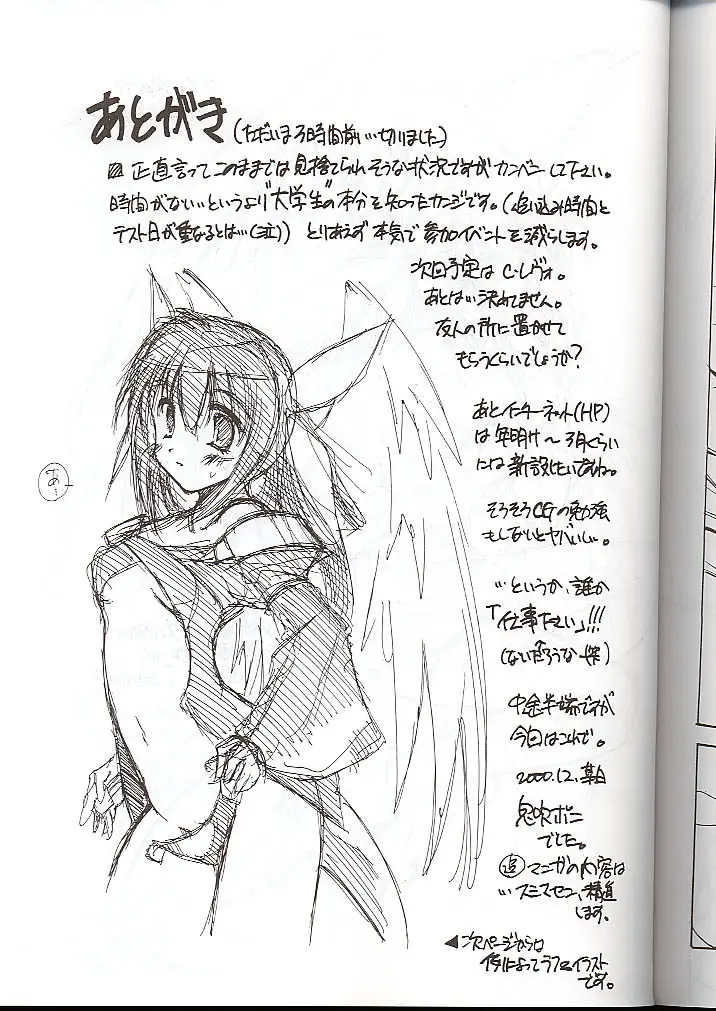 あとがき(ただいま3時間前…切りました)
正直言ってこのままでは見捨てられそうな状況ですがカンベンして下さい。
時間がない…というより"大学生"の本分を知ったカンジです。(追い込み時間と
テスト日が重なるとは…(泣)) とりあえず本気で参加イベントを減らします。
次回予定はC・レヴォ。
あとは…決めてません。
友人の所に置かせて
もらうくらいでしょうか?
あとインターネット(HP)
は年明け〜3月くらい
には新設したいですね。
そろそろCGの勉強
もしないとヤバいし…。
…というか、誰か
「仕事下さい」!!!
(ないだろうな…)
中途半端ですが
今回はこれで。
2000.12.某日
でした。
追 マンガの内容は
…スミマセン、精進
します。
◀次ページからは
例によってラフイラスト
です。
あ…